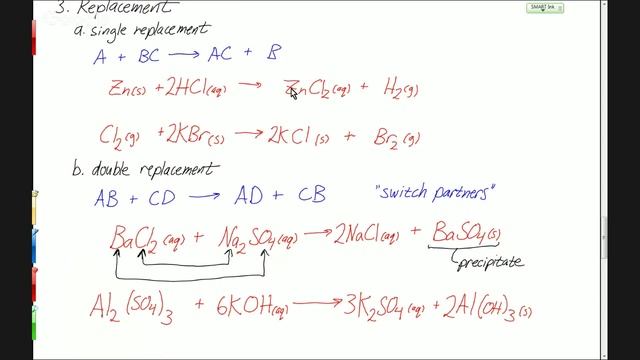 SMART Ink
3. Replacement
a. single replacement
A + BC → AC + B
Zn(s) + 2HCl(aq) → ZnCl₂(aq) + H₂(g)
Cl₂(g) + 2KBr(s) → 2KCl(s) + Br₂(g)
b. double replacement
AB + CD → AD + CB "switch partners"
BaCl₂(aq) + Na₂SO₄(aq) → 2NaCl(aq) + BaSO₄(s)
precipitate
Al₂(SO₄)₃ + 6KOH(aq) → 3K₂SO₄(aq) + 2Al(OH)₃(s)